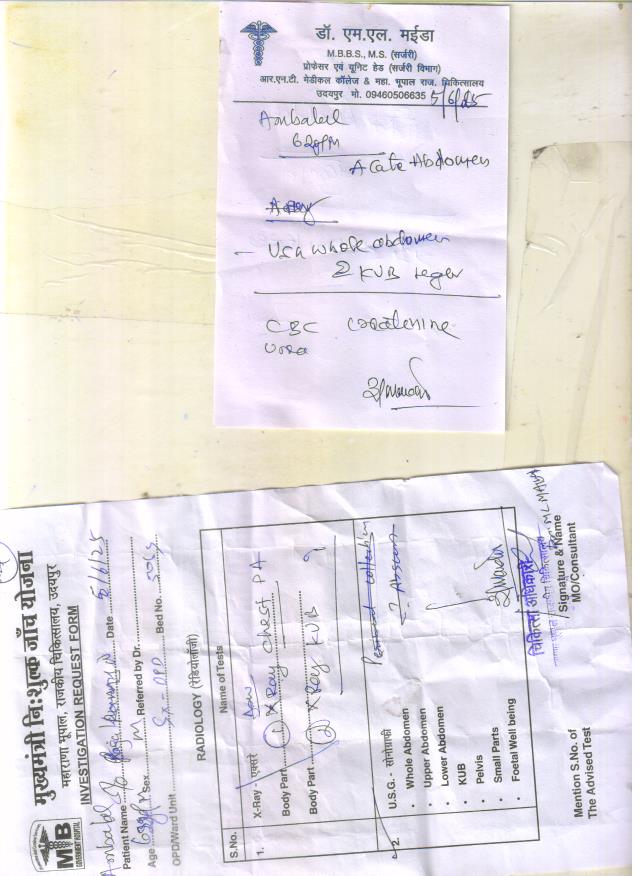 डॉ. एम.एल. मईडा
M.B.B.S., M.S. (सर्जरी)
प्रोफेसर एवं यूनिट हेड (सर्जरी विभाग)
आर.एन.टी. मेडीकल कॉलेज & महा. भूपाल राज. चिकित्सालय
उदयपुर मो. 09460506635 5/6/25
Ambalal
62y/M
Acute Abdomen
- USG whole abdomen
KUB
CBC
मुख्यमंत्री नि:शुल्क जाँच योजना
महाराणा भूपाल, राजकीय चिकित्सालय, उदयपुर
INVESTIGATION REQUEST FORM
MB
GOVERNMENT HOSPITAL
Patient Name Ambalal Date 5/6/25
Age Sex M Referred by Dr.
OPD/Ward Unit Sx-OPD Bed No.
RADIOLOGY (रेडियोलॉजी)
S.No. Name of Tests
1. X-Ray - एक्सरे
Body Part 1) X Ray Chest PA
Body Part 2) X Ray KUB
2. U.S.G - सोनोग्राफी
• Whole Abdomen
• Upper Abdomen
• Lower Abdomen
• KUB
• Pelvis
• Small Parts
• Foetal Well being
चिकित्सा अधिकारी
Signature & Name
MO/Consultant
Mention S.No. of
The Advised Test